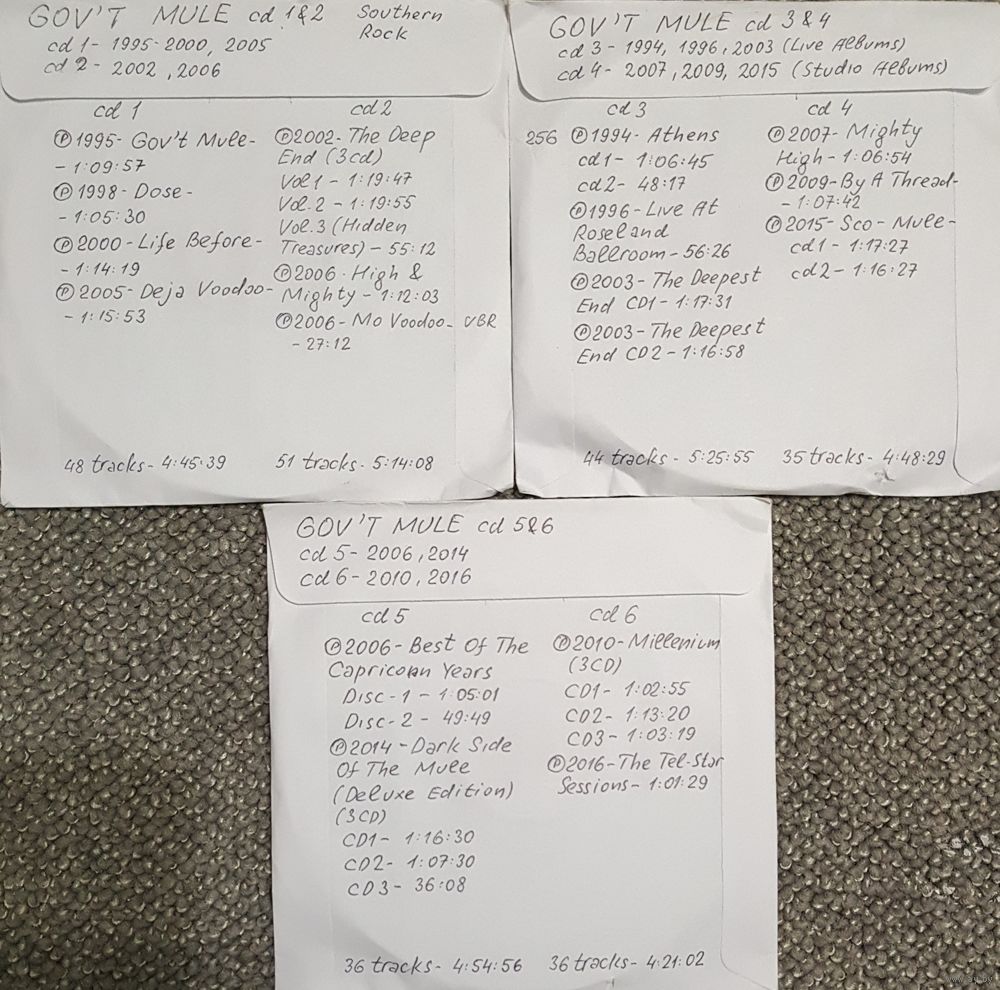 GOV'T MULE cd 1&2 Southern
Rock
cd 1- 1995-2000, 2005
cd 2- 2002, 2006
cd 1
Ⓟ1995- Gov't Mule-
- 1:09:57
Ⓟ1998- Dose-
- 1:05:30
Ⓟ2000-Life Before-
- 1:14:19
Ⓟ2005-Deja Voodoo-
- 1:15:53
48 tracks- 4:45:39
cd2
Ⓟ2002-The Deep
End (3cd)
Vol 1 - 1:19:47
Vol.2 - 1:19:55
Vol.3 (Hidden
Treasures) - 55:12
Ⓟ2006-High &
Mighty - 1:12:03
Ⓟ2006-Mo Voodoo- VBR
- 27:12
51 tracks- 5:14:08
GOV'T MULE cd 3&4
cd 3- 1994, 1996, 2003 (Live Albums)
cd 4- 2007, 2009, 2015 (Studio Albums)
cd3
256 Ⓟ1994- Athens
cd1- 1:06:45
cd2- 48:17
Ⓟ1996-Live At
Roseland
Ballroom- 56:26
Ⓟ2003-The Deepest
End CD1- 1:17:31
Ⓟ2003-The Deepest
End CD2-1:16:58
44 tracks- 5:25:55
cd 4
Ⓟ2007-Mighty
High-1:06:54
Ⓟ2009-By A Thread-
- 1:07:42
Ⓟ2015-Sco-Mule-
cd1- 1:17:27
cd2- 1:16:27
35 tracks- 4:48:29
GOV'T MULE cd 5&6
cd 5- 2006, 2014
cd 6- 2010, 2016
cd 5
Ⓟ2006-Best Of The
Capricorn Years
Disc-1 - 1:05:01
Disc-2 - 49:49
Ⓟ2014-Dark Side
Of The Mule
(Deluxe Edition)
(3CD)
CD1- 1:16:30
CD2- 1:07:30
CD3- 36:08
36 tracks- 4:54:56
cd 6
Ⓟ2010-Millenium
(3CD)
CD1- 1:02:55
CD2- 1:13:20
CD3- 1:03:19
Ⓟ2016-The Tel-Star
Sessions-1:01:29
36 tracks- 4:21:02